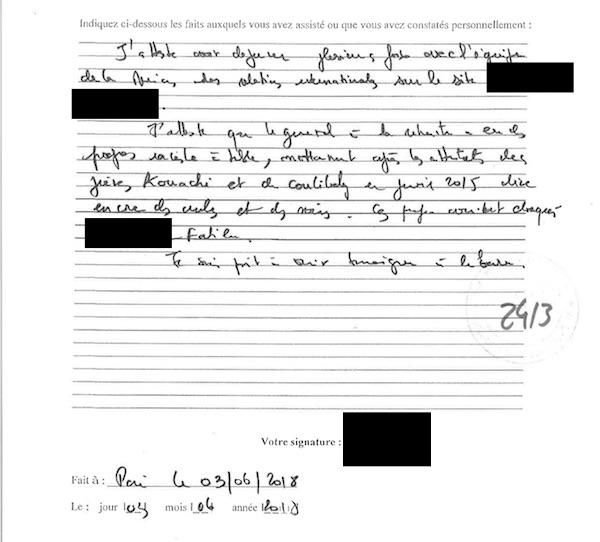 Indiquez ci-dessous les faits auxquels vous avez assisté ou que vous avez constatés personnellement :
J'atteste avoir dejeuner plusieurs fois avec l'équipe
de la des relations internationales sur le site
.
J'atteste que le general à la retraite a eu des
propos raciste à table, notamment après les attentats des
frères Kouachi et de Coulibaly en janvier 2015 dire
encore des et des noirs. Ces propos choqués
Fatiha.
Je suis prêt à venir temoigner à la barre.
24/3
Votre signature :
Fait à : Paris le 03/06/2018
Le : jour 03 mois 06 année 2018